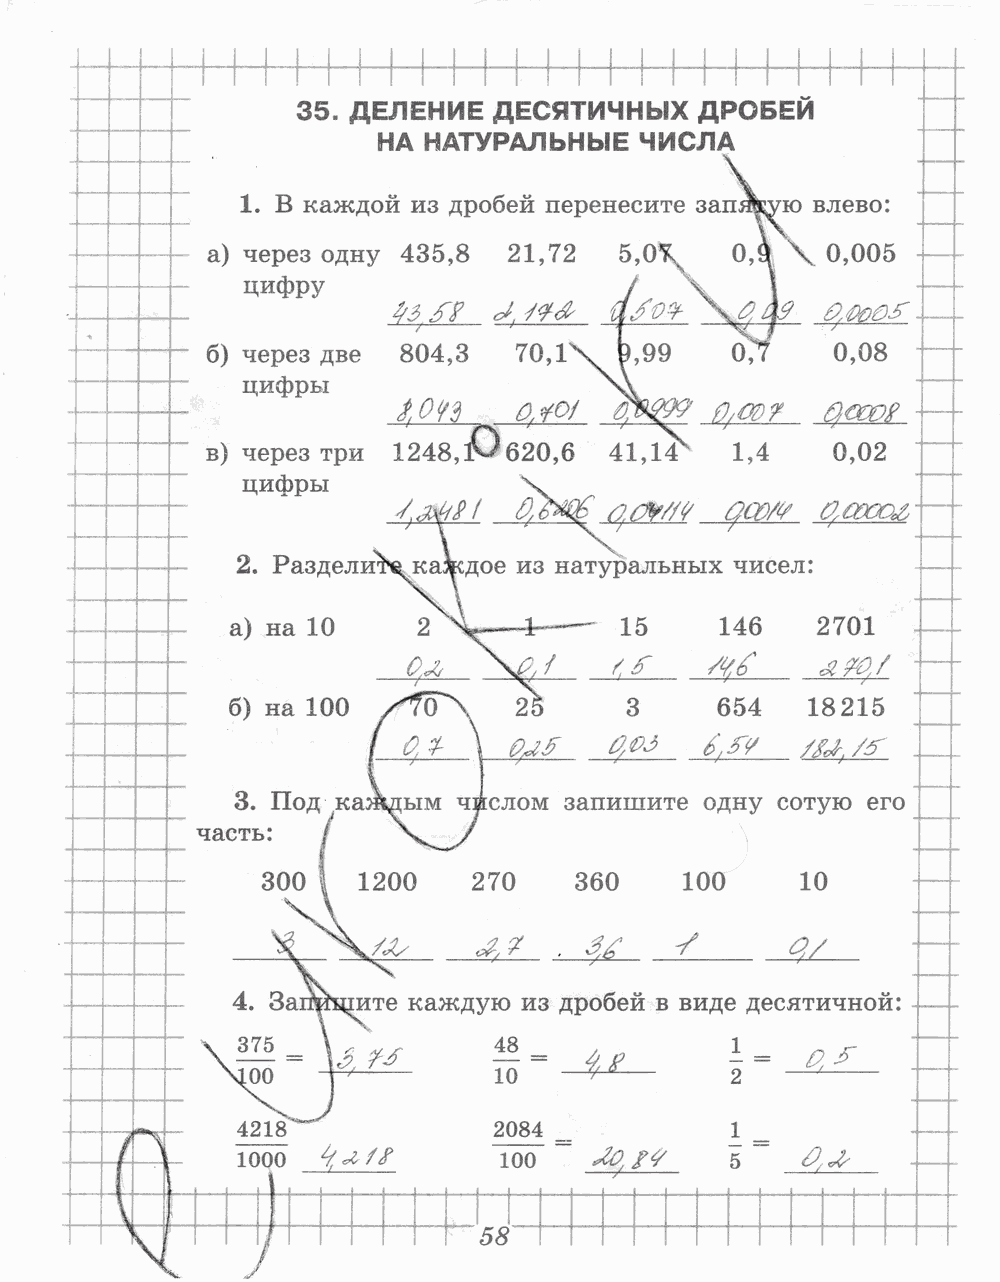 35. ДЕЛЕНИЕ ДЕСЯТИЧНЫХ ДРОБЕЙ
НА НАТУРАЛЬНЫЕ ЧИСЛА
1. В каждой из дробей перенесите запятую влево:
а) через одну 435,8 21,72 5,07 0,9 0,005
цифру
43,58 2,172 0,507 0,09 0,0005
б) через две 804,3 70,1 9,99 0,7 0,08
цифры
8,043 0,701 0,0999 0,007 0,0008
в) через три 1248,1 620,6 41,14 1,4 0,02
цифры
1,2481 0,6206 0,04114 0,0014 0,00002
2. Разделите каждое из натуральных чисел:
а) на 10 2 1 15 146 2701
0,2 0,1 1,5 14,6 270,1
б) на 100 70 25 3 654 18 215
0,7 0,25 0,03 6,54 182,15
3. Под каждым числом запишите одну сотую его
часть:
300 1200 270 360 100 10
3 12 2,7 3,6 1 0,1
4. Запишите каждую из дробей в виде десятичной:
375/100 = 3,75 48/10 = 4,8 1/2 = 0,5
4218/1000 4,218 2084/100 = 20,84 1/5 = 0,2
58